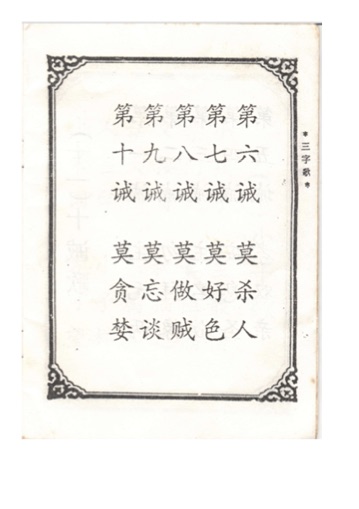 *三字歌*
第六诫 莫杀人
第七诫 莫好色
第八诫 莫做贼
第九诫 莫忘谈
第十诫 莫贪婪